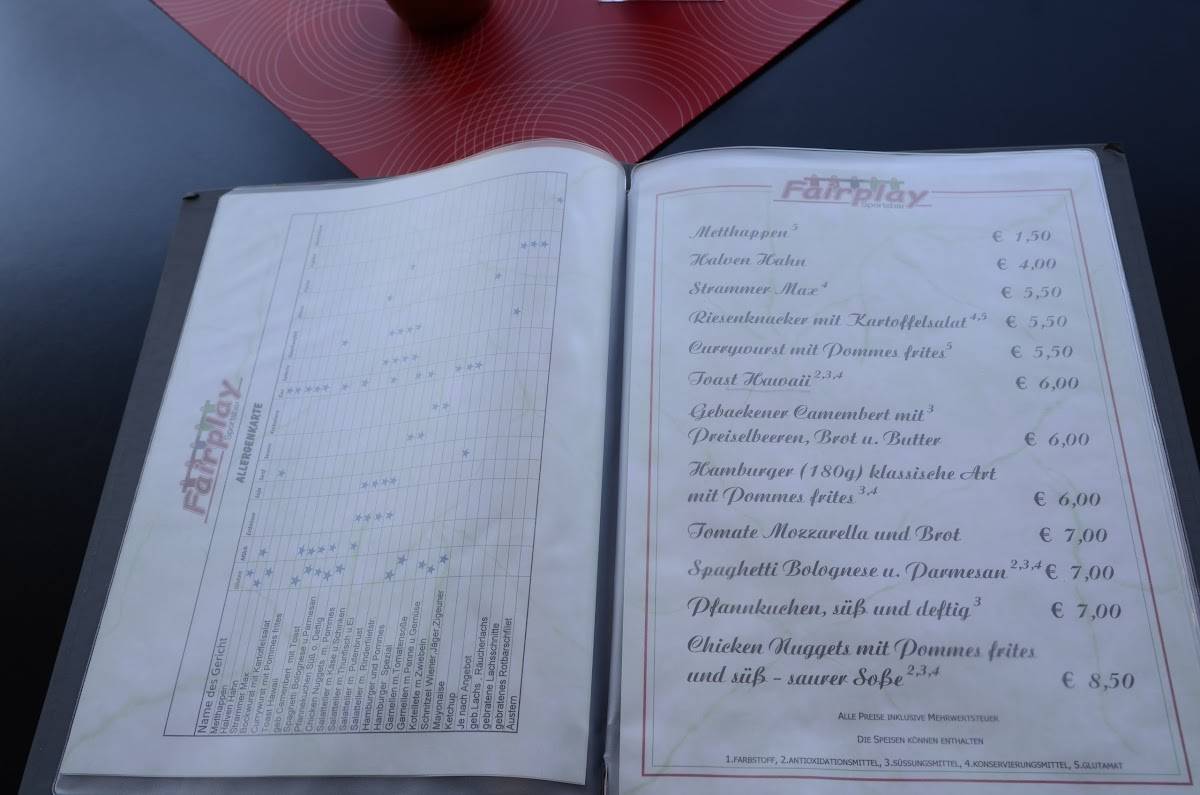 Fairplay
Sportsbar
ALLERGENKARTE
Name des Gericht
Metthappen
Halven Hahn
Strammer Max
Bockwurst mit Kartoffelsalat
Currywurst mit Pommes frites
Toast Hawaii
geb.Camembert mit Toast
Spaghetti Bolognese u.Parmesan
Pfannekuchen Süß o. Deftig
Chicken Nuggets m. Pommes
Salatteller m Käse u.Schinken
Salatteller m Thunfisch u Ei
Salatteller m. Putenbrust
Salatteller m. Rinderfiletstr
Hamburger und Pommes
Hamburger Spezial
Garnelen m.Tomatensoße
Garnelen m.Penne u Gemüse
Kotelette m.Zwiebeln
Schnitzel Wiener,Jäger,Zigeuner
Mayonaise
Ketchup
Je nach Angebot
geb.Lachs , Räucherlachs
gebratene Lachsschnitte
gebratenes Rotbarschfilet
Austern
Fairplay
Sportsbar
Metthappen⁵ € 1,50
Halven Hahn € 4,00
Strammer Max⁴ € 5,50
Riesenknacker mit Kartoffelsalat⁴,⁵ € 5,50
Currywurst mit Pommes frites⁵ € 5,50
Toast Hawaii²,³,⁴ € 6,00
Gebackener Camembert mit³
Preiselbeeren, Brot u. Butter € 6,00
Hamburger (180g) klassische Art
mit Pommes frites³,⁴ € 6,00
Tomate Mozzarella und Brot € 7,00
Spaghetti Bolognese u. Parmesan²,³,⁴ € 7,00
Pfannkuchen, süß und deftig³ € 7,00
Chicken Nuggets mit Pommes frites
und süß - saurer Soße²,³,⁴ € 8,50
ALLE PREISE INKLUSIVE MEHRWERTSTEUER
DIE SPEISEN KÖNNEN ENTHALTEN
1.FARBSTOFF, 2.ANTIOXIDATIONSMITTEL, 3.SÜSSUNGSMITTEL, 4.KONSERVIERUNGSMITTEL, 5.GLUTAMAT